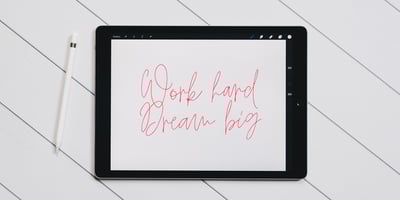 Work hard
Dream big